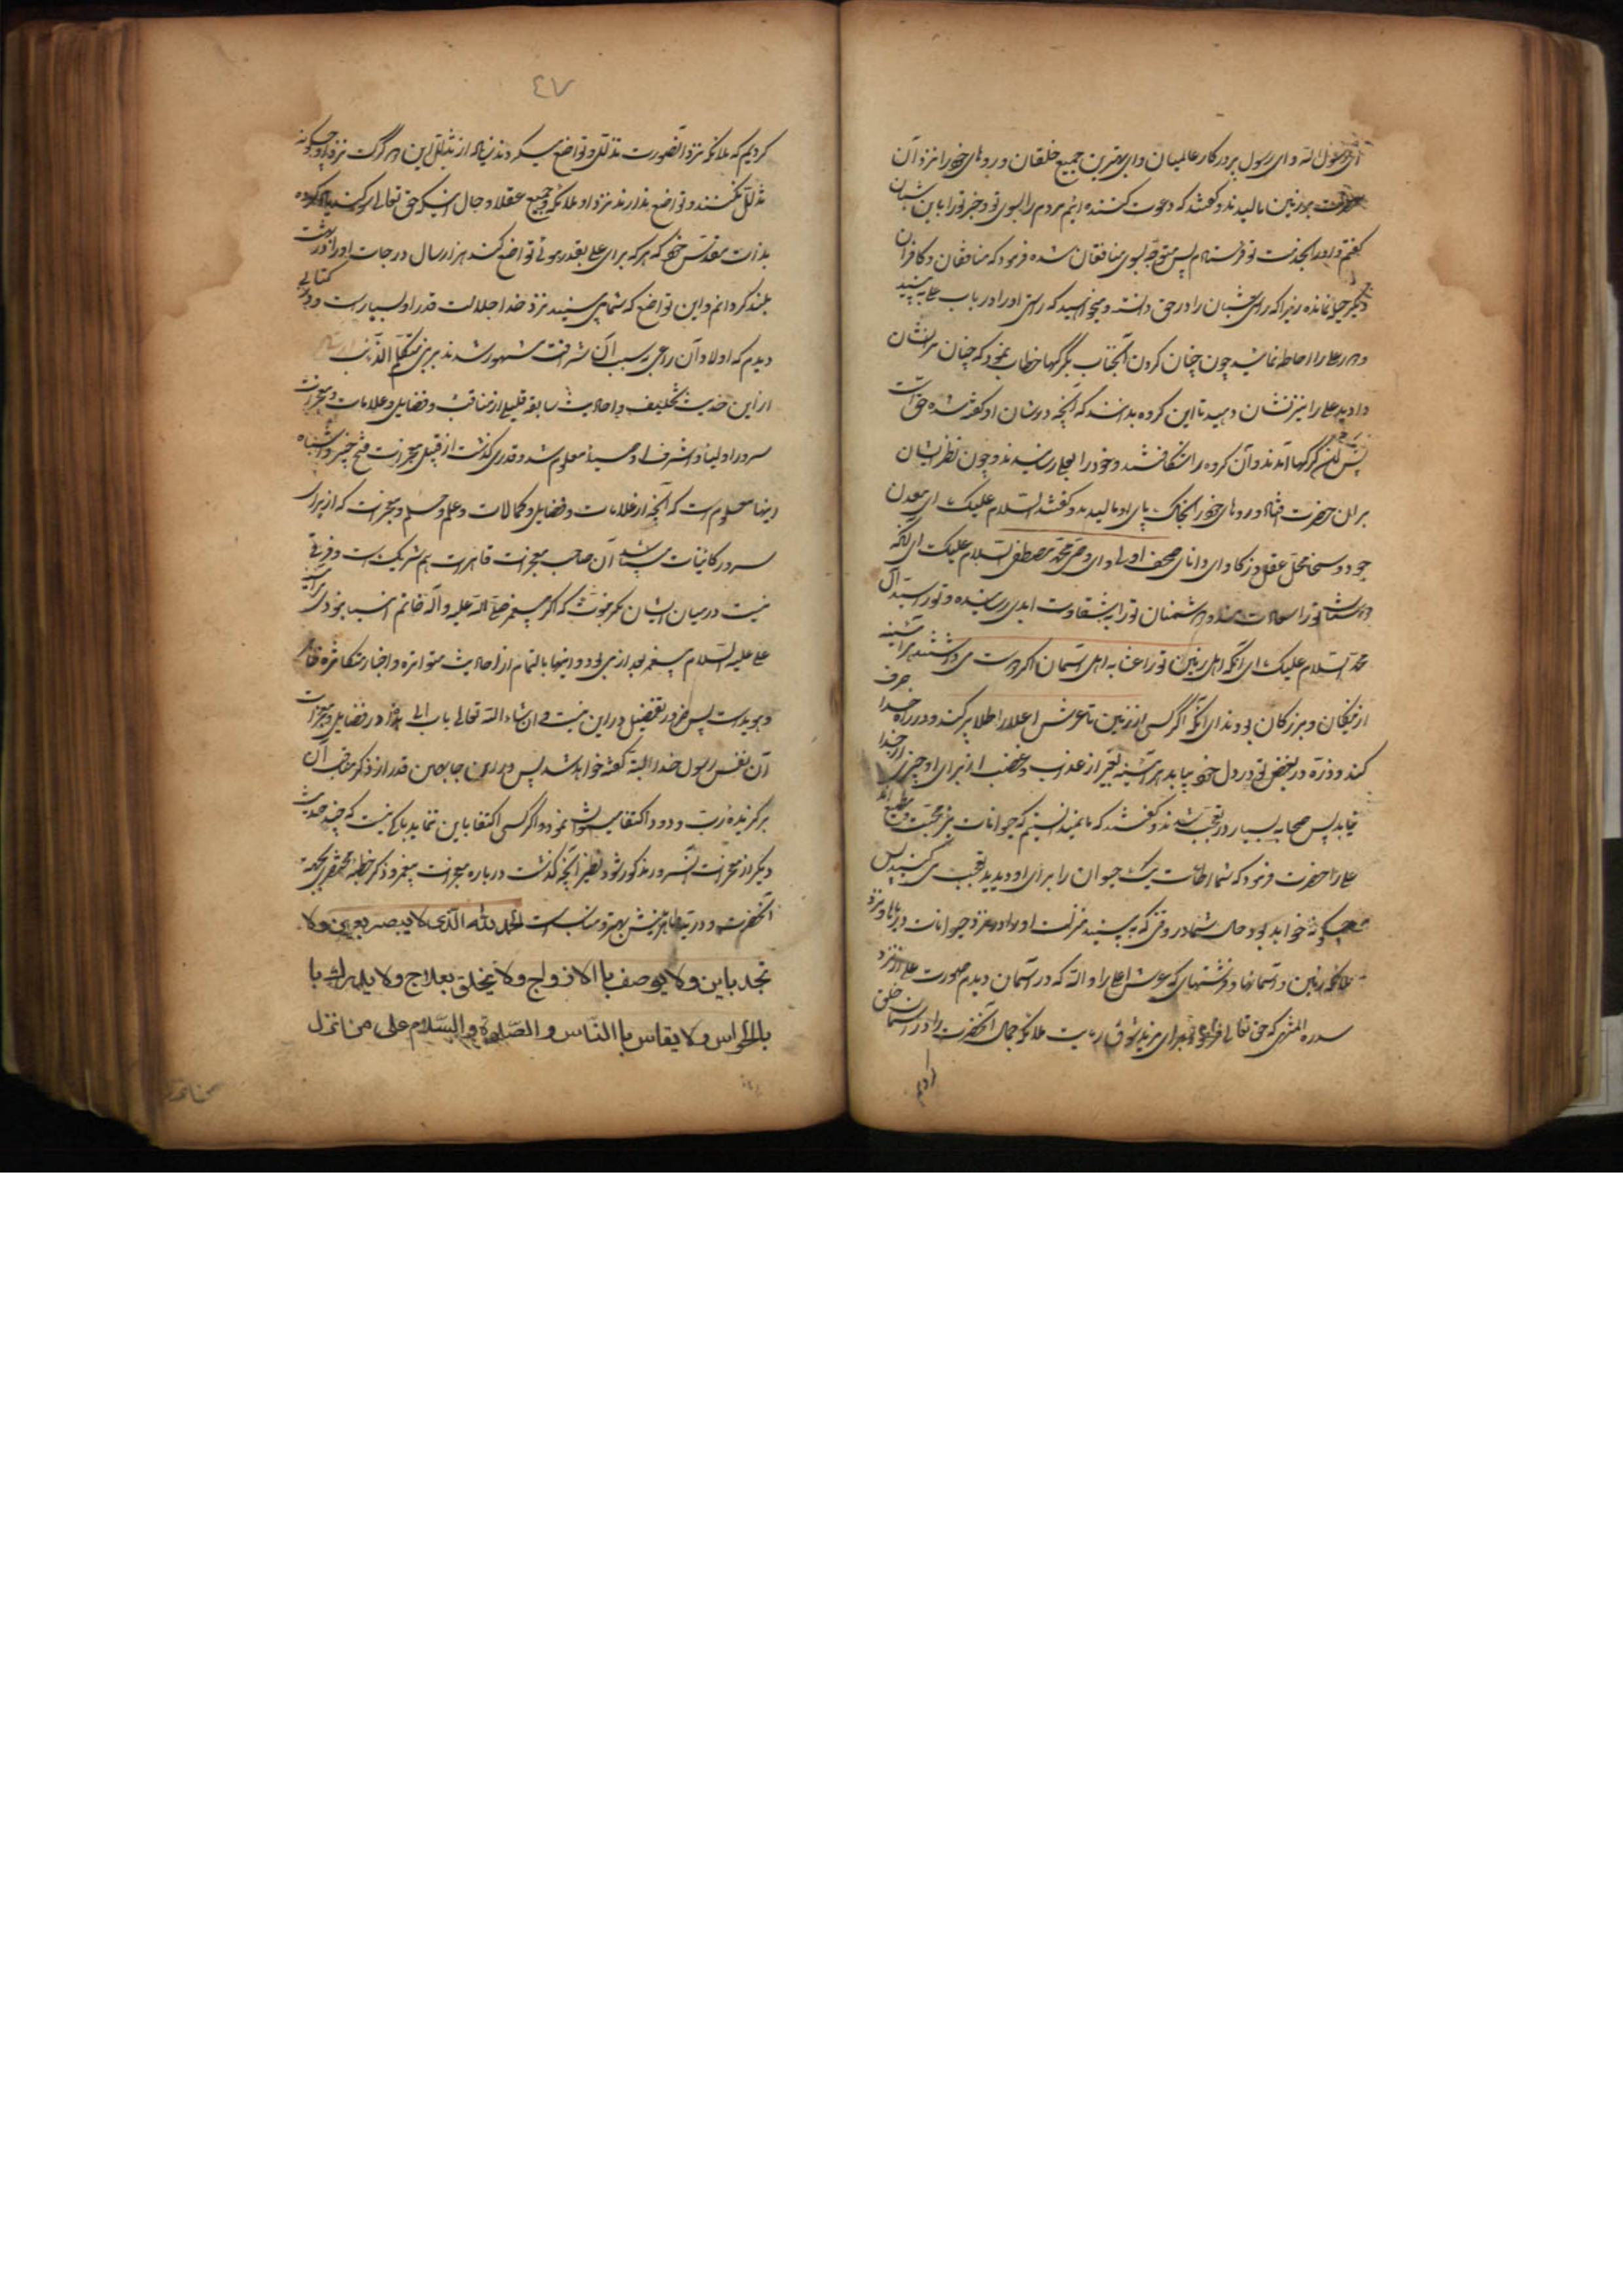 ای رسول الله و ای رسول پروردکار عالمیان و ای بهترین جمیع خلقان و روهای خود را نزد آن
حضرت بر زمین مالیدند و کفتند که دعوت کننده ایم مردم را بسوی تو و خبر تو را باین شبان
کفتم و او را بخدمت تو فرستادم پس متوجه بسوی منافقان شده فرمود که منافقان و کافران
دیکر جای نمانده زیرا که رای شبان را در حق دانسته و میخواهید که راستی او را در باب علی به بینید
و دور علی را احاطه نمائید چون چنان کردن آنجناب بکرکها خطاب نمود که چنان مر نشان
دادید علی را نیز نشان دهید تا این کروه بدانند که آنچه در شان او کفته شده حق است
پس کرکها آمدند و آن کروه را شکافتند و خود را بعلی رسانیدند و چون نظر ایشان
بران حضرت افتاد روهای خود را بخاک پای او مالیدند و کفتند السلام علیک ای معدن
جود و سخا و محل عقل و زکا و ای دانای صحف اولی و ای وصی محمد مصطفی السلام علیک ای آنکه
دوستان تو را سعادت و دشمنان تو را بشقاوت ابدی رسانیده و تو را سید آل
محمد السلام علیک ای آنکه اهل زمین تو را مثابه اهل آسمان اکر دوست می داشتند هر آینه
از نیکان و بزرکان بودند ای آنکه اکر کسی از زمین تا عرش اعلا را طلا پر کند و در راه خدا صرف
کند و ذره در بغض تو در دل خود بیابد هر آینه بغیر از عذاب و غضب از برای او چیزی از خدا
نیابد پس صحابه بسیار در تعجب شدند و کفتند که ما نمیدانستیم که حیوانات نیز محبت و مطیع اند
علی را حضرت فرمود که شما اطاعت یک حیوان را برای او دیدید تعجب می کنید پس
چکونه خواهد بود حال شما در وقتی که به بینید منزلت او را نزد حیوانات دریاها و نزد
ملائکه زمین و آسمانها و فرشتهای که عرش اعلی را و الله که در آسمان دیدم صورت علی را نزد
سدره المنتهی که حق تعالی برای مزید شوق رویت ملائکه جمال آنحضرت را در آسمان خلق
٤٧
کردیم که ملائکه نزد آنصورت تذلل و تواضع میکردند زیاده از تذلل این دو کرک نزد او و چکونه
تذلل نکنند و تواضع ندارند نزد او ملائکه و جمیع عقلا و حال آنکه حق تعالی سوکند یاد کرده
بذات مقدس خود که هر که برای علی بقدر موئی تواضع کند هزار سال درجات او را در بهشت
بلند کردانم و این تواضع که شما می بینید نزد خدا جلالت قدر او بسیار است و در کتابی
دیدم که اولاد آن راعی بسبب آن شرافت مشهور شدند به بنی متکلم الذئب
از این حدیث شریف و احادیث سابقه قلیلی از مناقب و فضایل و علامات و معجزات
سرور اولیا و اشرف اوصیا معلوم شد و قدری کذشت از قبیل معجزات فتح خیبر و اشباه
اینها معلوم است که آنچه از علامات و فضایل و کمالات و علم و حلم و معجزات که از برای
سرور کائنات می باشد آن صاحب معجزات قاهرات هم شریک است و فرقی
نیست در میان ایشان مکر نبوت که اکر پیغمبر صلی الله علیه و آله خاتم انبیا نبودی هر آینه
علی علیه السلام پیغمبر بعد از نبی بود و اینها بالتمام از احادیث متواتره و اخبار متکاثره ظاهر
و هویداست پس ضرور تفضیل در این نیست و ان شاء الله تعالی باب در فضایل و معجزات
آن نفس رسول خدا البته کفته خواهد شد پس در این جا بهمین قدر از ذکر مناقب آن
برکزیده رب ودود اکتفا میتوان نمود و اکر کسی اکتفا باین ننماید باکی نیست که چند حدیث
دیکر از معجزات آنسرور مذکور شود نظیر آنچه کذشت درباره معجزات پیغمبر و ذکر خطبه مختصری بجهة
آنحضرت و ذریه طاهرینش بهتر و مناسب است الحمد لله الذی لا یبصر بعین ولا
تجد باین ولا یوصف باالازواج ولا یخلق بعلاج ولا یدرک با
بالحواس ولا یقاس باالناس والصلوة والسلام علی من انزل